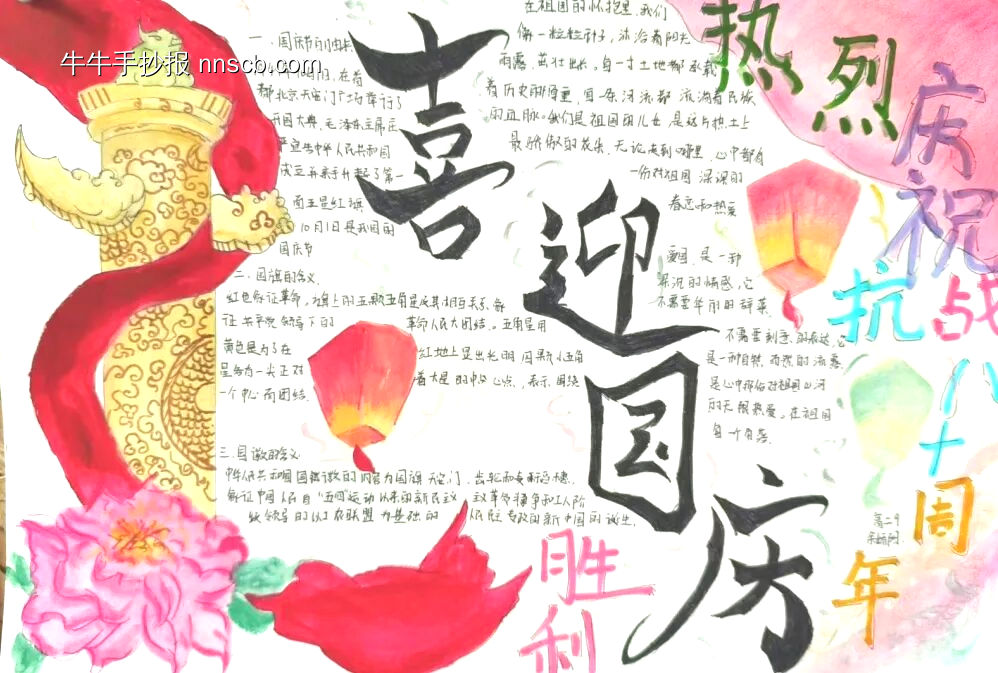 牛牛手抄报 nnscb.com
喜迎国庆
热烈
庆祝
抗战
八十
周
年
胜
利
一、国庆节的由来
都北京天安门广场举行了
开国大典，毛泽东主席庄
严宣告中华人民共和国
成立并亲手升起了第一
面五星红旗
10月1日是我国的
国庆节
二、国旗的含义
红色象征革命，旗上的五颗五角星及其相互关系象
征共产党领导下的 革命人民大团结。五角星用
黄色是为了在 红地上显出光明，四颗小五角
星各有一尖正对 着大星的中心点，表示围绕
一个中心而团结。
三、国徽的含义
中华人民共和国国徽的内容为国旗、天安门、齿轮和麦稻穗，
象征中国人民自“五四”运动以来的新民主 主义革命斗争和工人阶
级领导的以工农联盟为基础的 人民民主专政的新中国的诞生。
在祖国的怀抱里，我们
像一粒粒种子，沐浴着阳光
雨露，茁壮成长。每一寸土地都承载
着历史的厚重，每一条河流都流淌着民族
的血脉。我们是祖国的儿女，是这片热土上
最骄傲的花朵，无论走到哪里，心中都有
一份对祖国深深的
眷恋和热爱
爱国，是一种
深沉的情感，它
不需要华丽的辞藻
不需要刻意的表达，它
是一种自然而然的流露
是心中那份对祖国山河
的无限热爱。在祖国
每一个角落
高二9